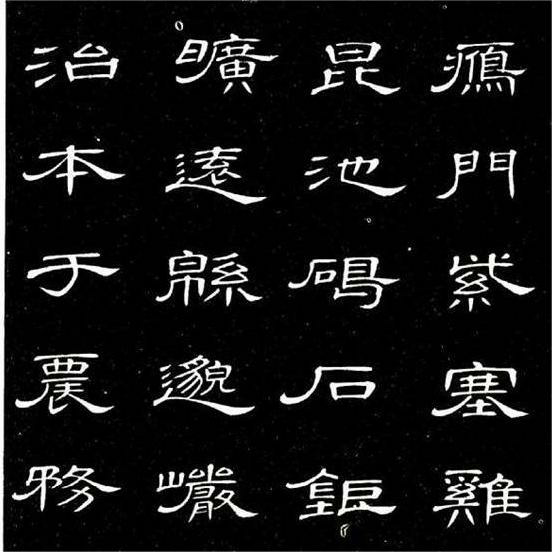 鴈門紫塞雞
昆池碣石鉅
曠遠緜邈巗
治本于農務